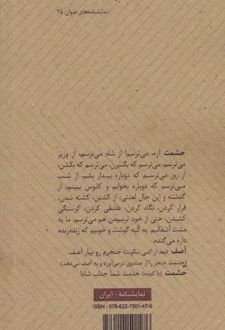 نمایشنامه‌های عنوان: ۳۵
حشمت آره، می‌ترسم! از شاه می‌ترسم، از وزیر
می‌ترسم، می‌ترسم که بگیرن، می‌ترسم که بکشن،
از روز می‌ترسم که دوباره بیدار بشم، از شب
می‌ترسم که دوباره بخوابم و کابوس ببینم؛ از
گذشته و این حال لعنتی، از کشتن، کشته شدن،
فرار کردن، نگاه کردن، عاشقی کردن، گرسنگی
کشیدن، حتی از خود ترسیدن هم می‌ترسم. ما یه
مشت آشغالیم. یه کُپه گوشت و خونیم که زنده‌زنده
داره می‌گنده.
آصف (بعد از کمی سکوت) خنجرم رو بیار آصف.
[حشمت خنجر را از صندوق درمی‌آورد و به آصف می‌دهد.]
حشمت (با کنایه) خدمت شما جناب شاه!
نمایشنامه - ایران
ISBN: 978-622-7501-47-6